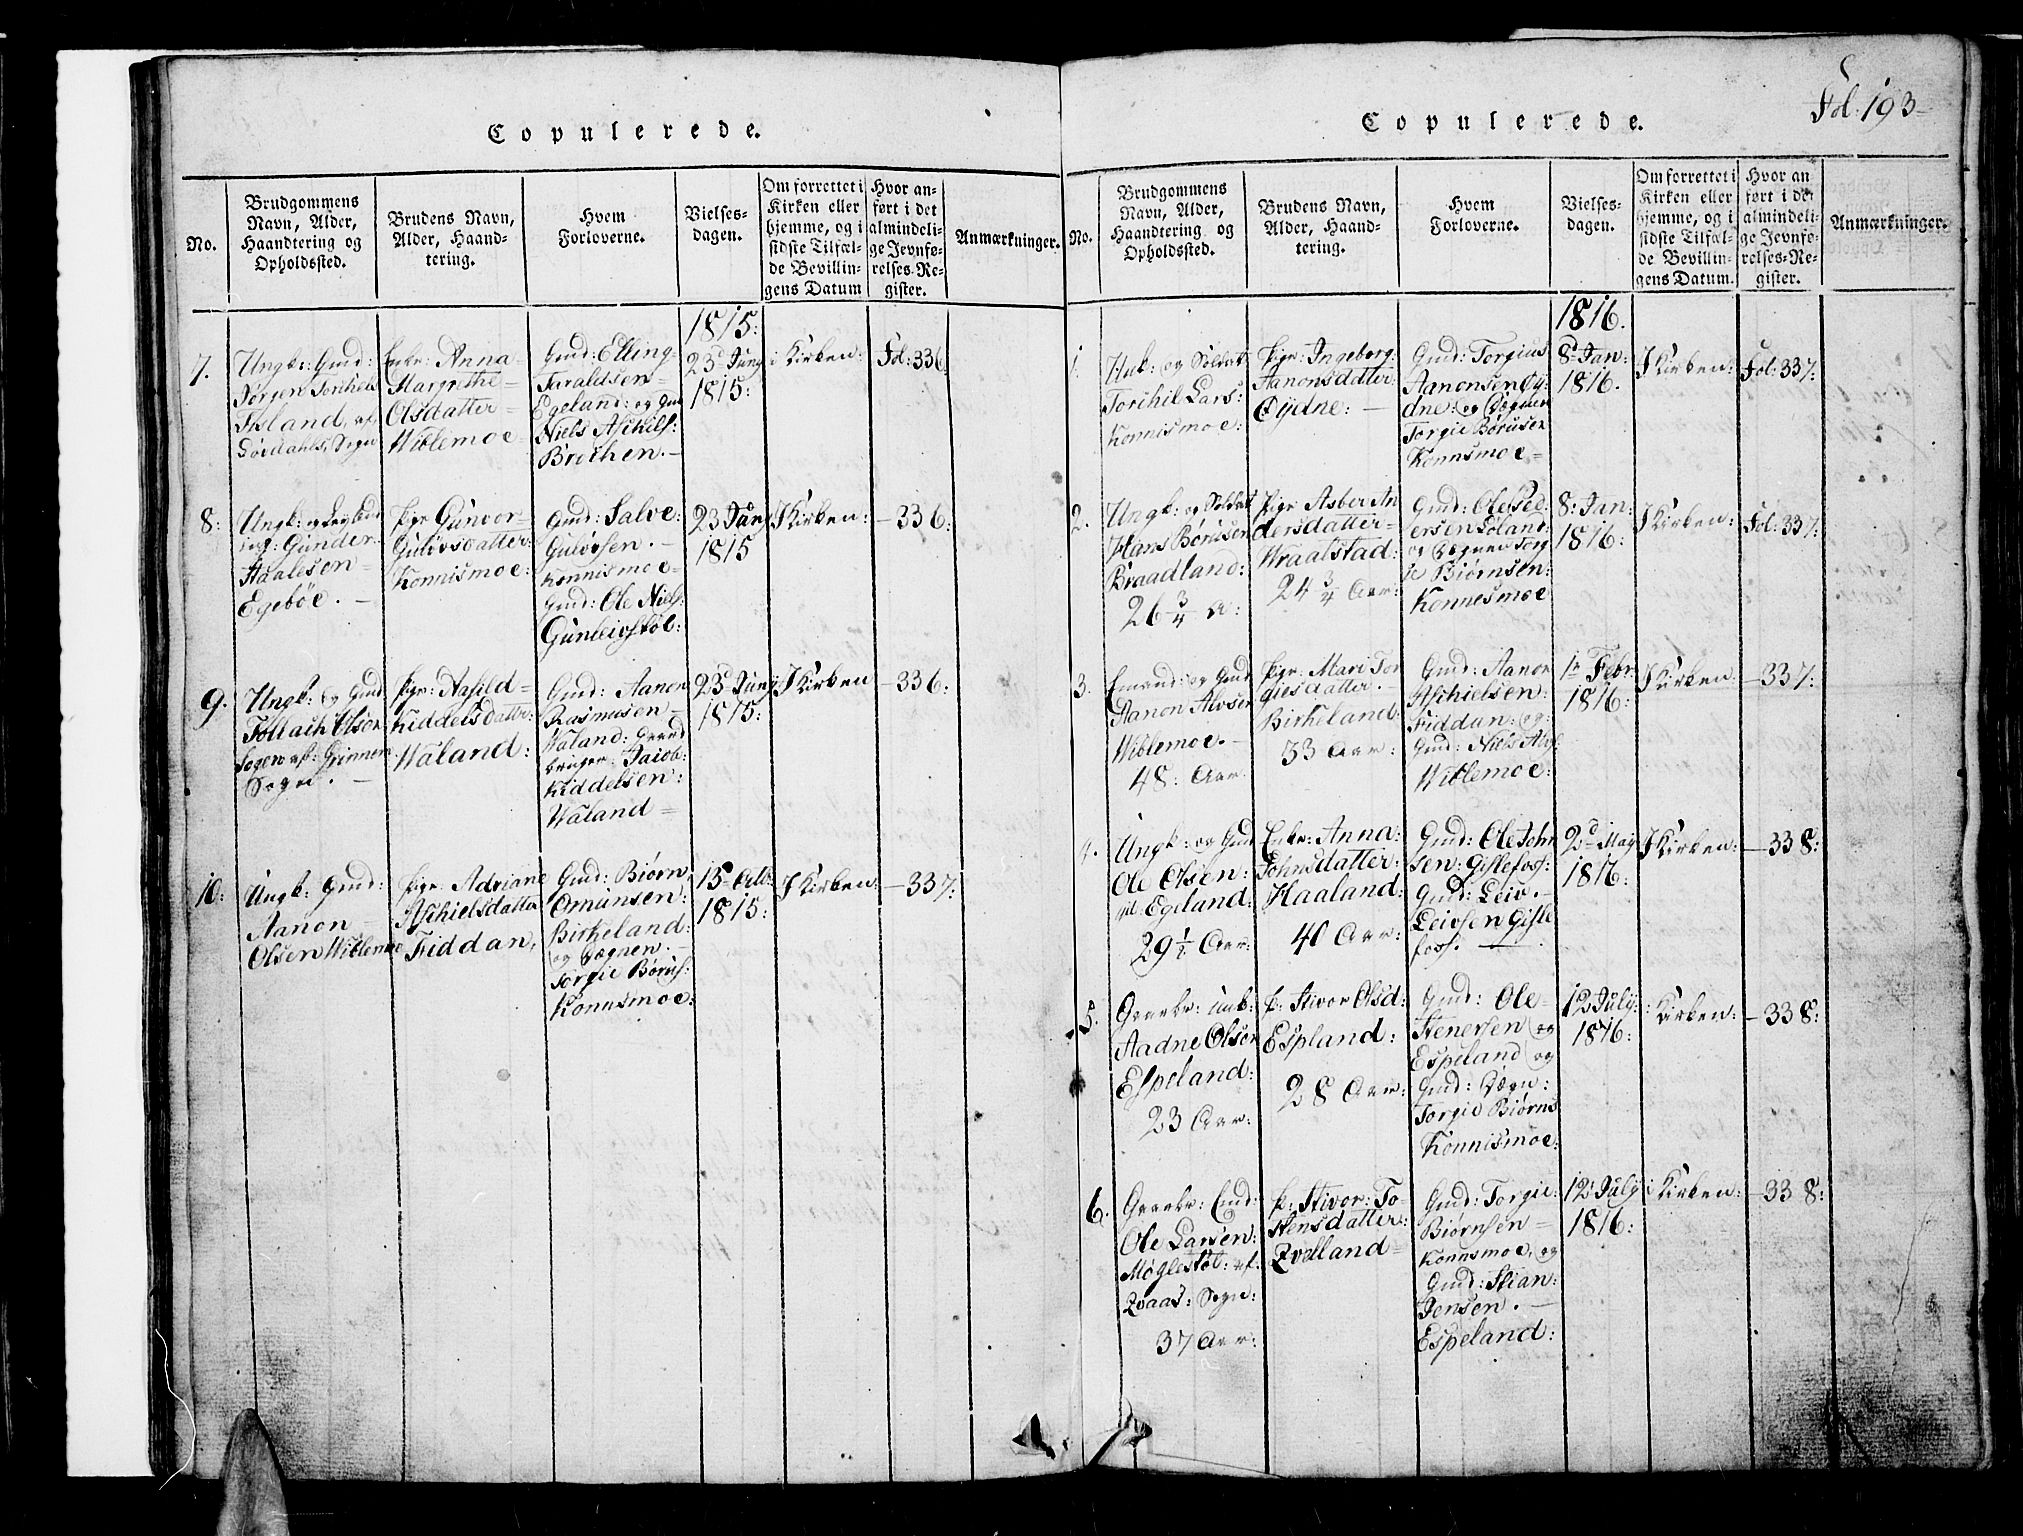 Copulerede.
No.
Brudgommens
Navn, Alder,
Haandtering og
Opholdssted.
Brudens Navn,
Alder, Haand-
tering.
Hvem
Forloverne.
Vielses-
dagen.
Om forrettet i
Kirken eller
hjemme, og i
sidste Tilfæl-
de Bevillin-
gens Datum
Hvor an-
ført i det
almindeli-
ge Jevnfø-
relses-Re-
gister.
Anmærkninger.
1815:
7.
Ungk: Gmd:
Jørgen
Sogn
Enke: Anna
Margrethe
Olsdatter
Wiblemoe
Gmd: Elling
Taraldsen
Egeland: og Gmd
Niels Aschils:
Brechen.
23d Junj
1815:
i Kirken:
Fol: 336
8:
Ungk:
Gunder
Aaalesen
Egebøe.
Pige Gunvor
Gulovsdatter:
Konnismoe:
Gmd: Salve
Gulovsen.
Konnismoe
Gmd: Ole Niels:
Gunleivstøl:
23 Junj
1815
I Kirken:
336:
9.
Ungk: og Gmd
Tollach Olson
Sogn.
Pige: Aasild
Kiddelsdatter:
Waland:
Gmd: Aanon
Rasmusen
Waland:
Jacob
Kiddelsen:
Waland
23d Junj
1815:
I Kirken
336:
10:
Ungk: Gmd:
Aanon
Olsen Wiblemoe
Pige: Adriane
Aschielsdatter
Fiddan,
Gmd: Biørn
Omunsen:
Birkeland:
og
Torgie Børius:
Konnsmoe:
15 Octb:
1815:
I Kirken:
337:
Fol: 193
Copulerede.
No.
Brudgommens
Navn, Alder,
Haandtering og
Opholdssted.
Brudens Navn,
Alder, Haand-
tering.
Hvem
Forloverne.
Vielses-
dagen.
Om forrettet i
Kirken eller
hjemme, og i
sidste Tilfæl-
de Bevillin-
gens Datum.
Hvor an
ført i det
almindeli-
ge Jevnfø-
relses-Re-
gister.
Anmærkninger.
1816.
1.
Unk: og Soldat
Torchil Lars:
Konnismoe:
Pige: Ingeborg
Aanonsdatter
Øydne:
Gmd: Torgius
Aanonsen Øy-
dne: og
Torgie Børusen
Konnsmoe
8d Jan:
1816.
I Kirken:
Fol: 337:
2.
Ungk: og Soldat
Hans Børusen
Braadland:
26 3/4 A:
Pige Asber An
dersdatter
Wraalstad:
24 3/4 Aar:
Gmd: Ole Ped
ersen Loland
og Torg
ie Biørnsen:
Konnesmoe
8: Jan:
1816:
I Kirken:
Fol: 337:
3.
Emand: og Gmd
Aanon Alvsen
Wiblemoe.
48: Aar.
Pige: Mari Tor
giesdatter.
Birkeland:
33 Aar:
Gmd: Aanon
Aschielsen:
Fiddan: og
Gmd: Niels Alvs:
Wiblemoe:
1t Febr
1816:
I Kirken:
337:
4.
Ungk: og Gmd
Ole Olsen:
Egeland:
29 1/2 Aar:
Enke: Anna:
Johnsdatter:
Haaland:
40 Aar:
Gmd: Ole John
sen: Gislefoss:
Gmd: Leiv.
Leivsen Gisle
foss.
2d May
1816:
I Kirken:
338:
5.
Aadne Olsen
Espeland:
23 Aar:
P: Stivor Olsd:
Espland:
28 Aar:
Gmd: Ole
Stenersen og
Espeland og
Gmd:
Torgie Biørns
Konnismoe:
12 July:
1816:
i Kirken:
338:
6.
Ole Larsen:
Møglestøl: af
Qvaas: Sogn:
37 Aar:
P: Stivor: To-
stensdatter:
Qvelland
Gmd: Torgie:
Biørnsen
Konnsmoe, og
Gmd: Stian:
Jensen.
Espeland:
12 July
1816:
i Kirken:
338: